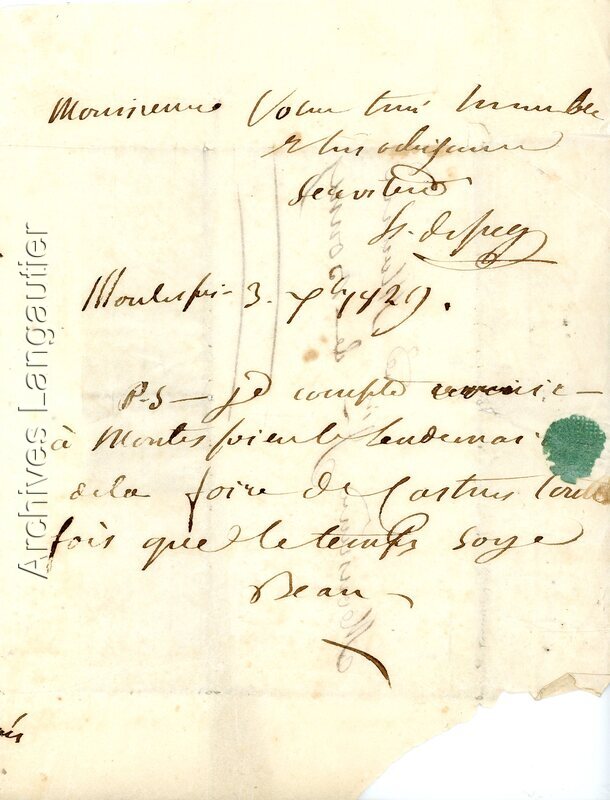 Monsieur Votre très humble
et très obeissant
serviteur
Montespieu 3. 7bre 1829.
P.S – je compte revenir
à Montespieu le lendemain
de la foire de Castres toute
fois que le temps soye
Beau
Archives Langautier